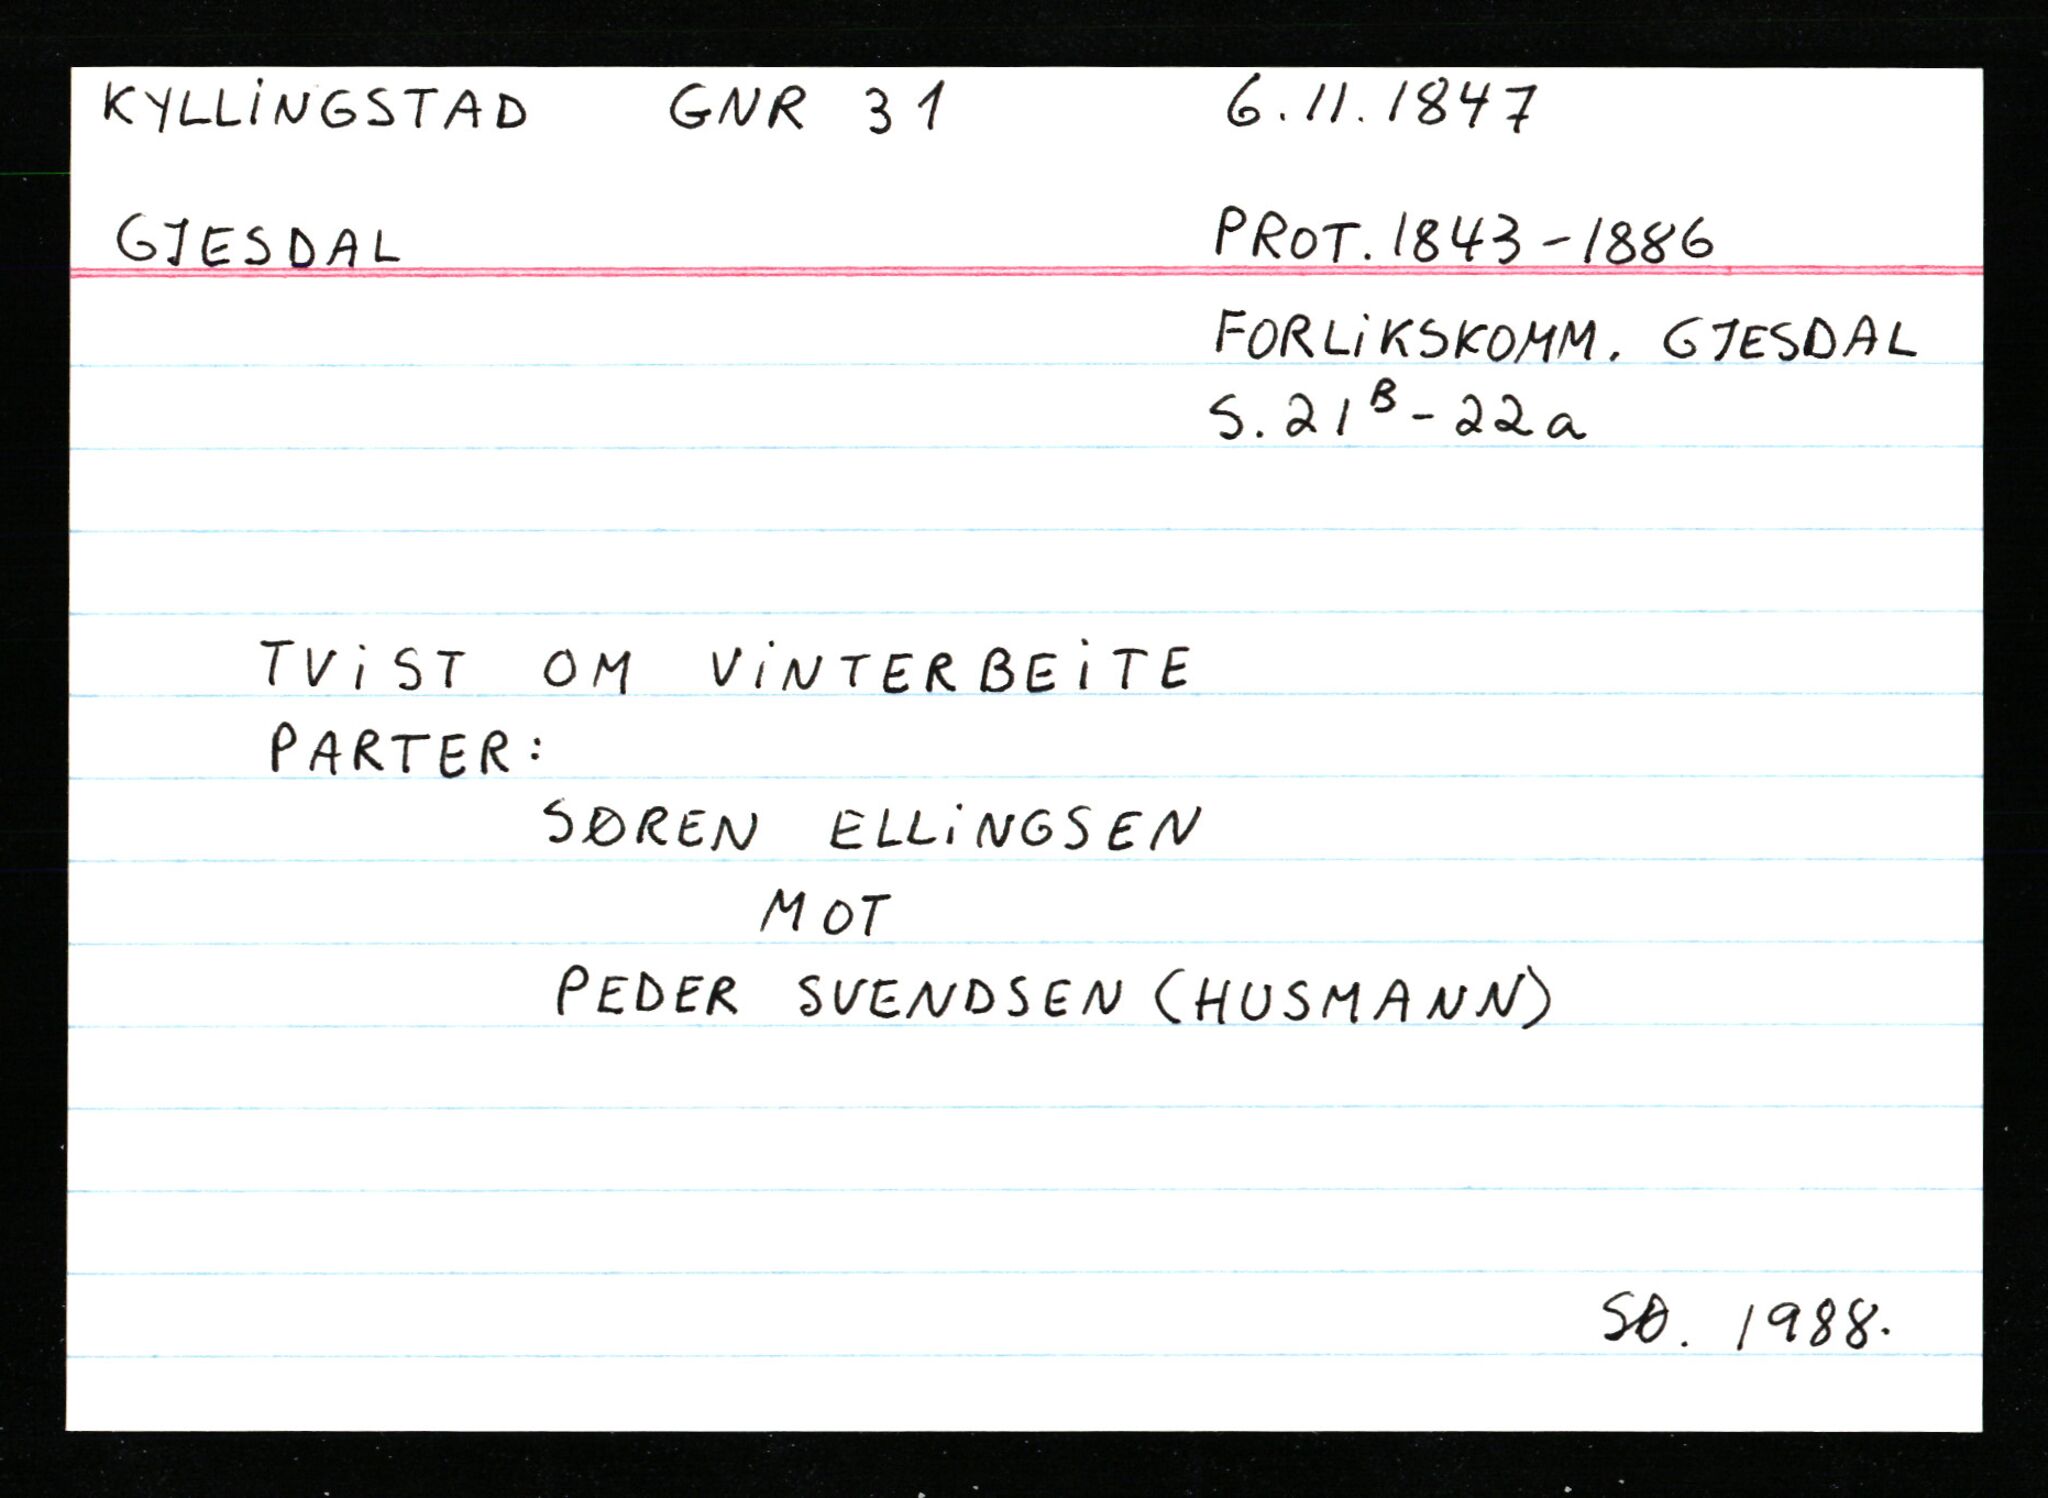 KYLLiNGSTAD GNR 31 6.11.1847
GJESDAL PROT. 1843-1886
FORLiKSKOMM. GJESDAL
S. 21ᴮ-22a
TViST OM ViNTERBEiTE
PARTER:
SØREN ELLiNGSEN
MOT
PEDER SVENDSEN (HUSMANN)
SØ. 1988.